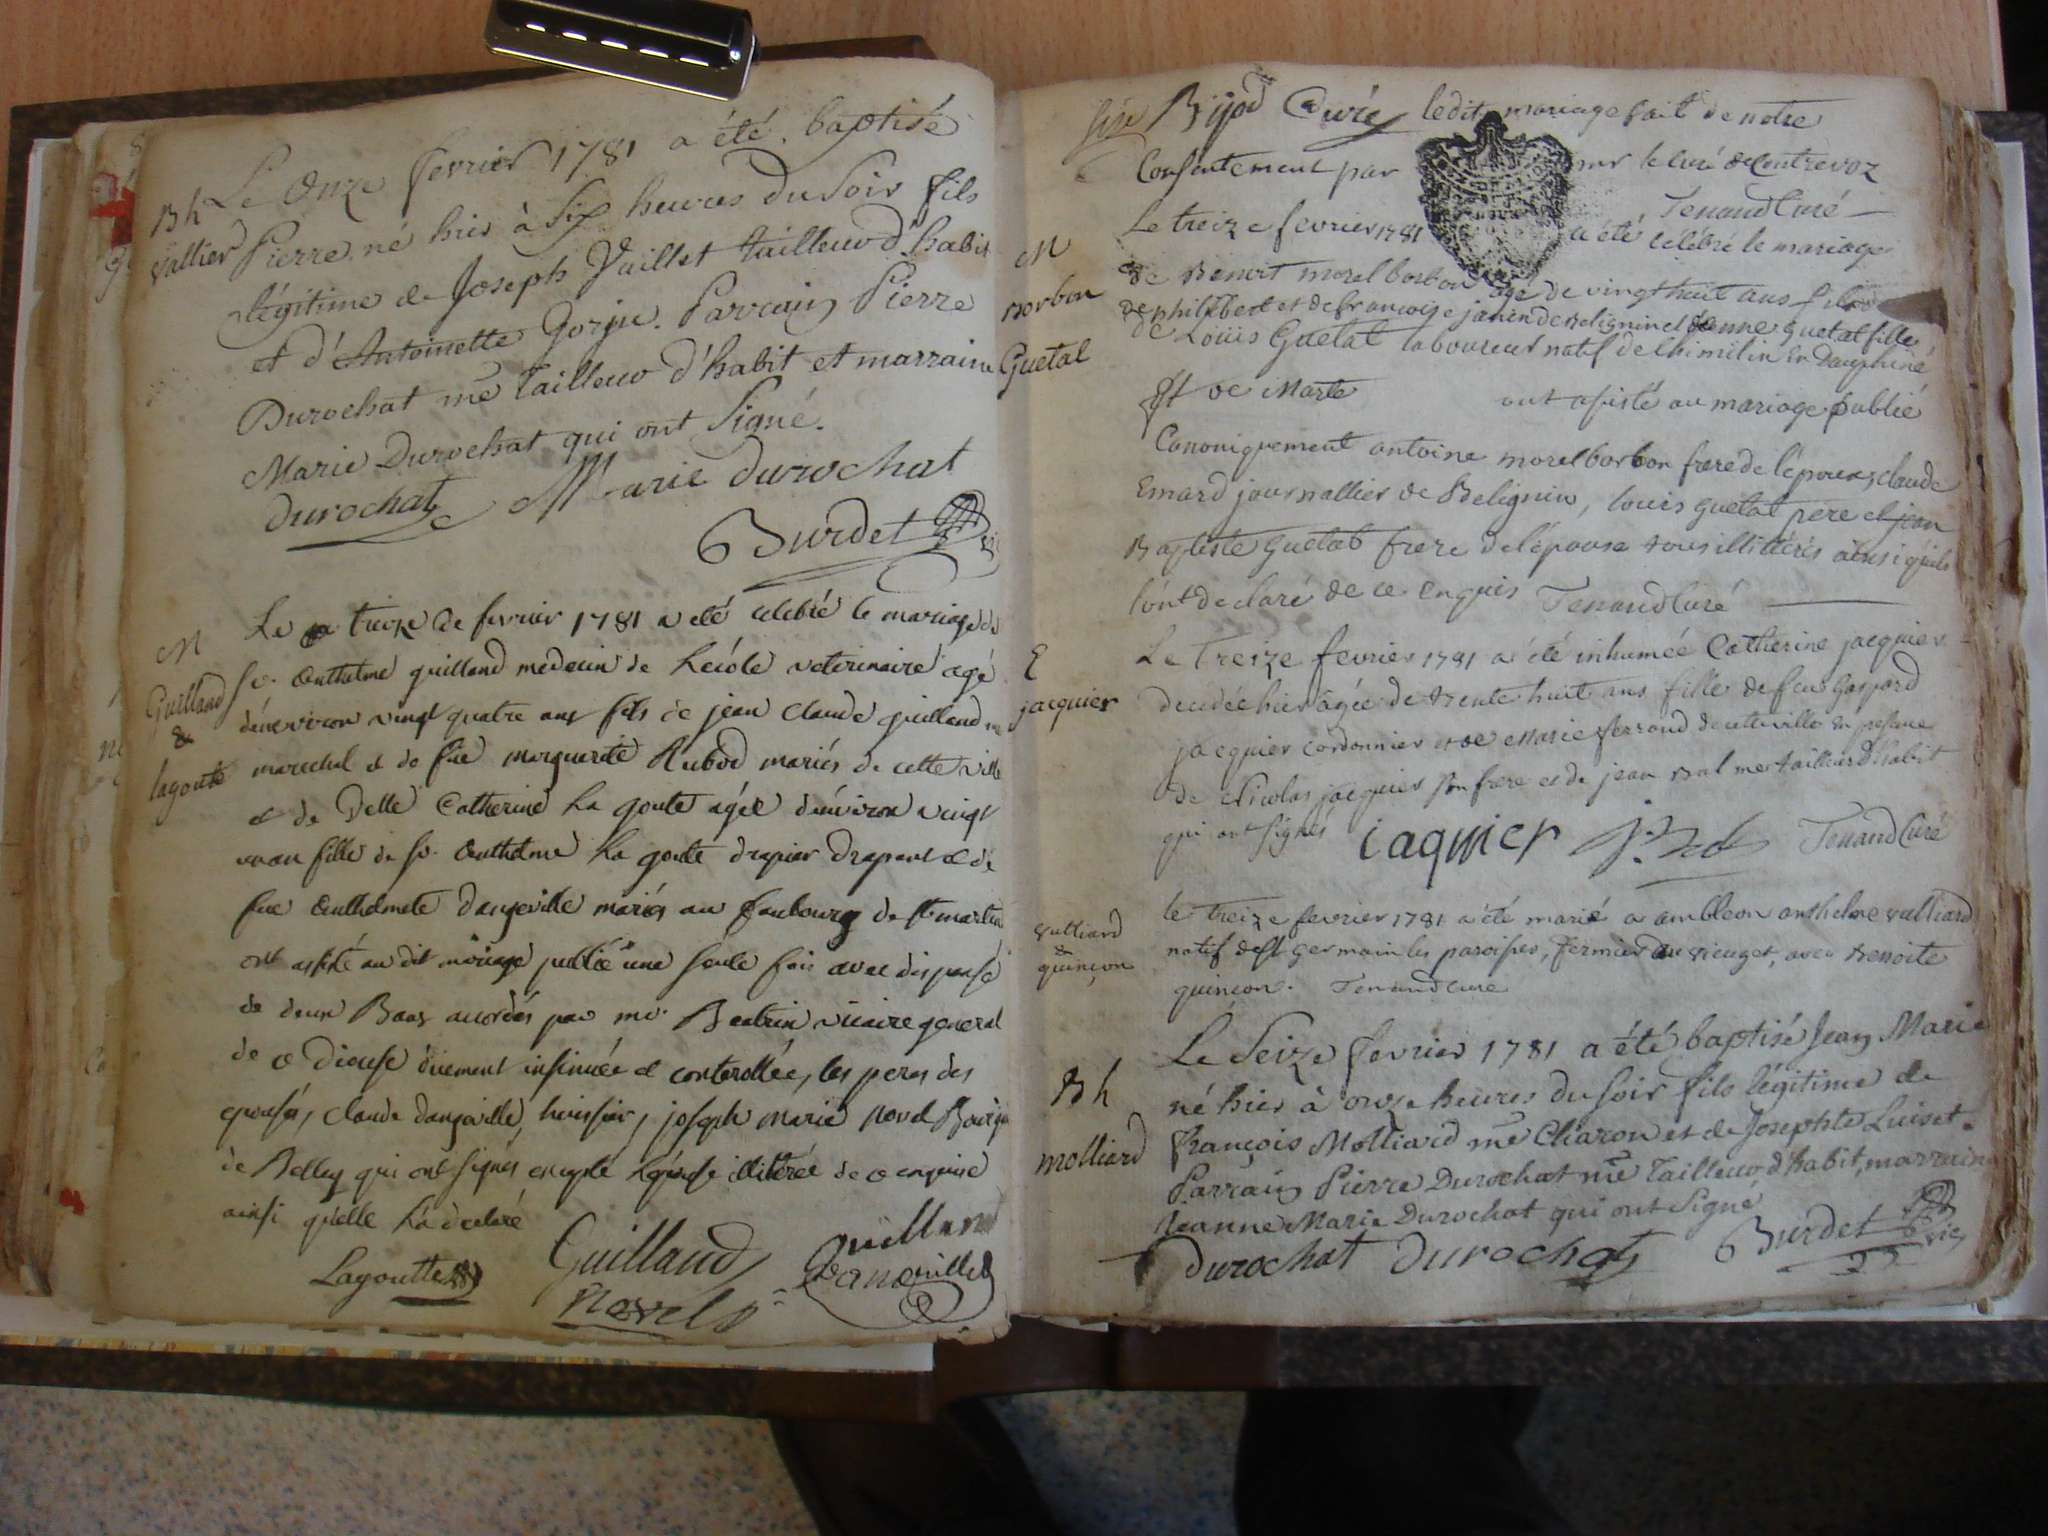 Bh
vallier
Le Onze fevrier 1781 a été baptisé
Pierre, né hier à Six heures du Soir fils
légitime de Joseph Vaillet tailleur d'habit
et d'Antoinette Gorju. Parrain Pierre
Durochat me Tailleur d'habit et marraine
Marie Durochat qui ont Signé.
durochat Marie durochat
Burdet
M
Guilland
&
lagoute
Le treize de fevrier 1781 a été celebré le mariage de
sr. Anthelme guilland medecin de Lécole veterinaire agé
dénviron vingt quatre ans fils de jean claude guilland
marechal & de fue marguerite Rubod mariés de cette ville
& de Delle Catherine La goute agée dénviron vingt
un an fille de sr. Anthelme La goute drapier drapant & de
fue Anthelmete dangeville mariés au faubourg de st martin
ont assisté au dit mariage publié une seule fois avec dispense
de deux Bans accordés par mr. Beatrix vicaire general
de ce diocese duement insinuée & controllée, les peres des
epousés, claude dangeville, huissier, joseph marie novel Bourgeois
de Belley qui ont signés excepté Lépouse illitérée de ce enquise
ainsi quélle La declaré
Guilland
Lagoutte Guilland Dangeville
Novel
Bijod Curé ledit mariage fait de notre
Consentement par mr le curé de Contrevoz
Tenand Curé
M
Borbon
Guetal
Le treize fevrier 1781 a été celébré le mariage
de Benoit morel borbon agé de vingt huit ans fils
de philibert et de francoise janin de Belignin et jeanne guetat fille
de Louis Guetat laboureur natif de Chimilin en Dauphiné
Et de Marte ont assisté au mariage publié
Canoniquement antoine morel borbon frere de l'époux, claude
Emard journallier de Belignin, louis guetat pere et jean
Baptiste Guetat frere de lépouse tous illittérés ainsi quils
lónt declaré de ce enquis Tenand Curé
E
jacquier
Le treize fevrier 1781 a été inhumée Catherine jacquier
decedée hier agée de trente huit ans fille de feu Gaspard
jacquier cordonnier et de Marie ferrand de cette ville en presence
de Nicolas jacquier son frere et de jean Bal me tailleur d'habit
qui ont signés iaquier Tenand Curé
vulliard
&
quinçon
le treize fevrier 1781 a été marié a ambleon anthelme vulliard
natif de st germain les paroisses, fermier au vieuget, avec Benoite
quinçon. Tenand Curé
Bh
molliard
Le Seize fevrier 1781 a été baptisé Jean Marie
né hier à onze heures du soir fils légitime de
François Molliard me Charon et de Josephte Luiset.
Parrain Pierre Durochat me Tailleur d'habit, marraine
Jeanne Marie Durochat qui ont signé
durochat durochat Burdet